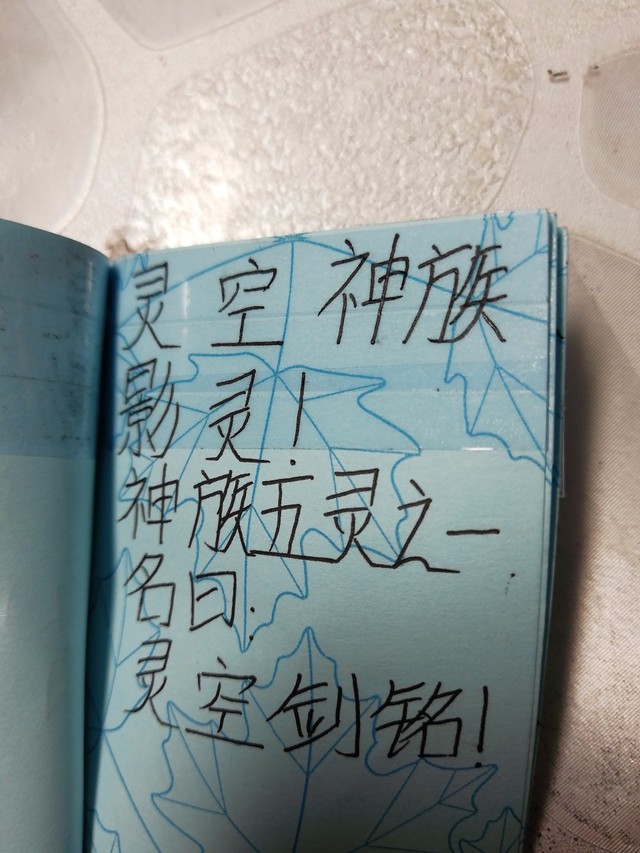 灵 空 神族
影 灵!
神族五灵之一
名曰.
灵空剑铭!